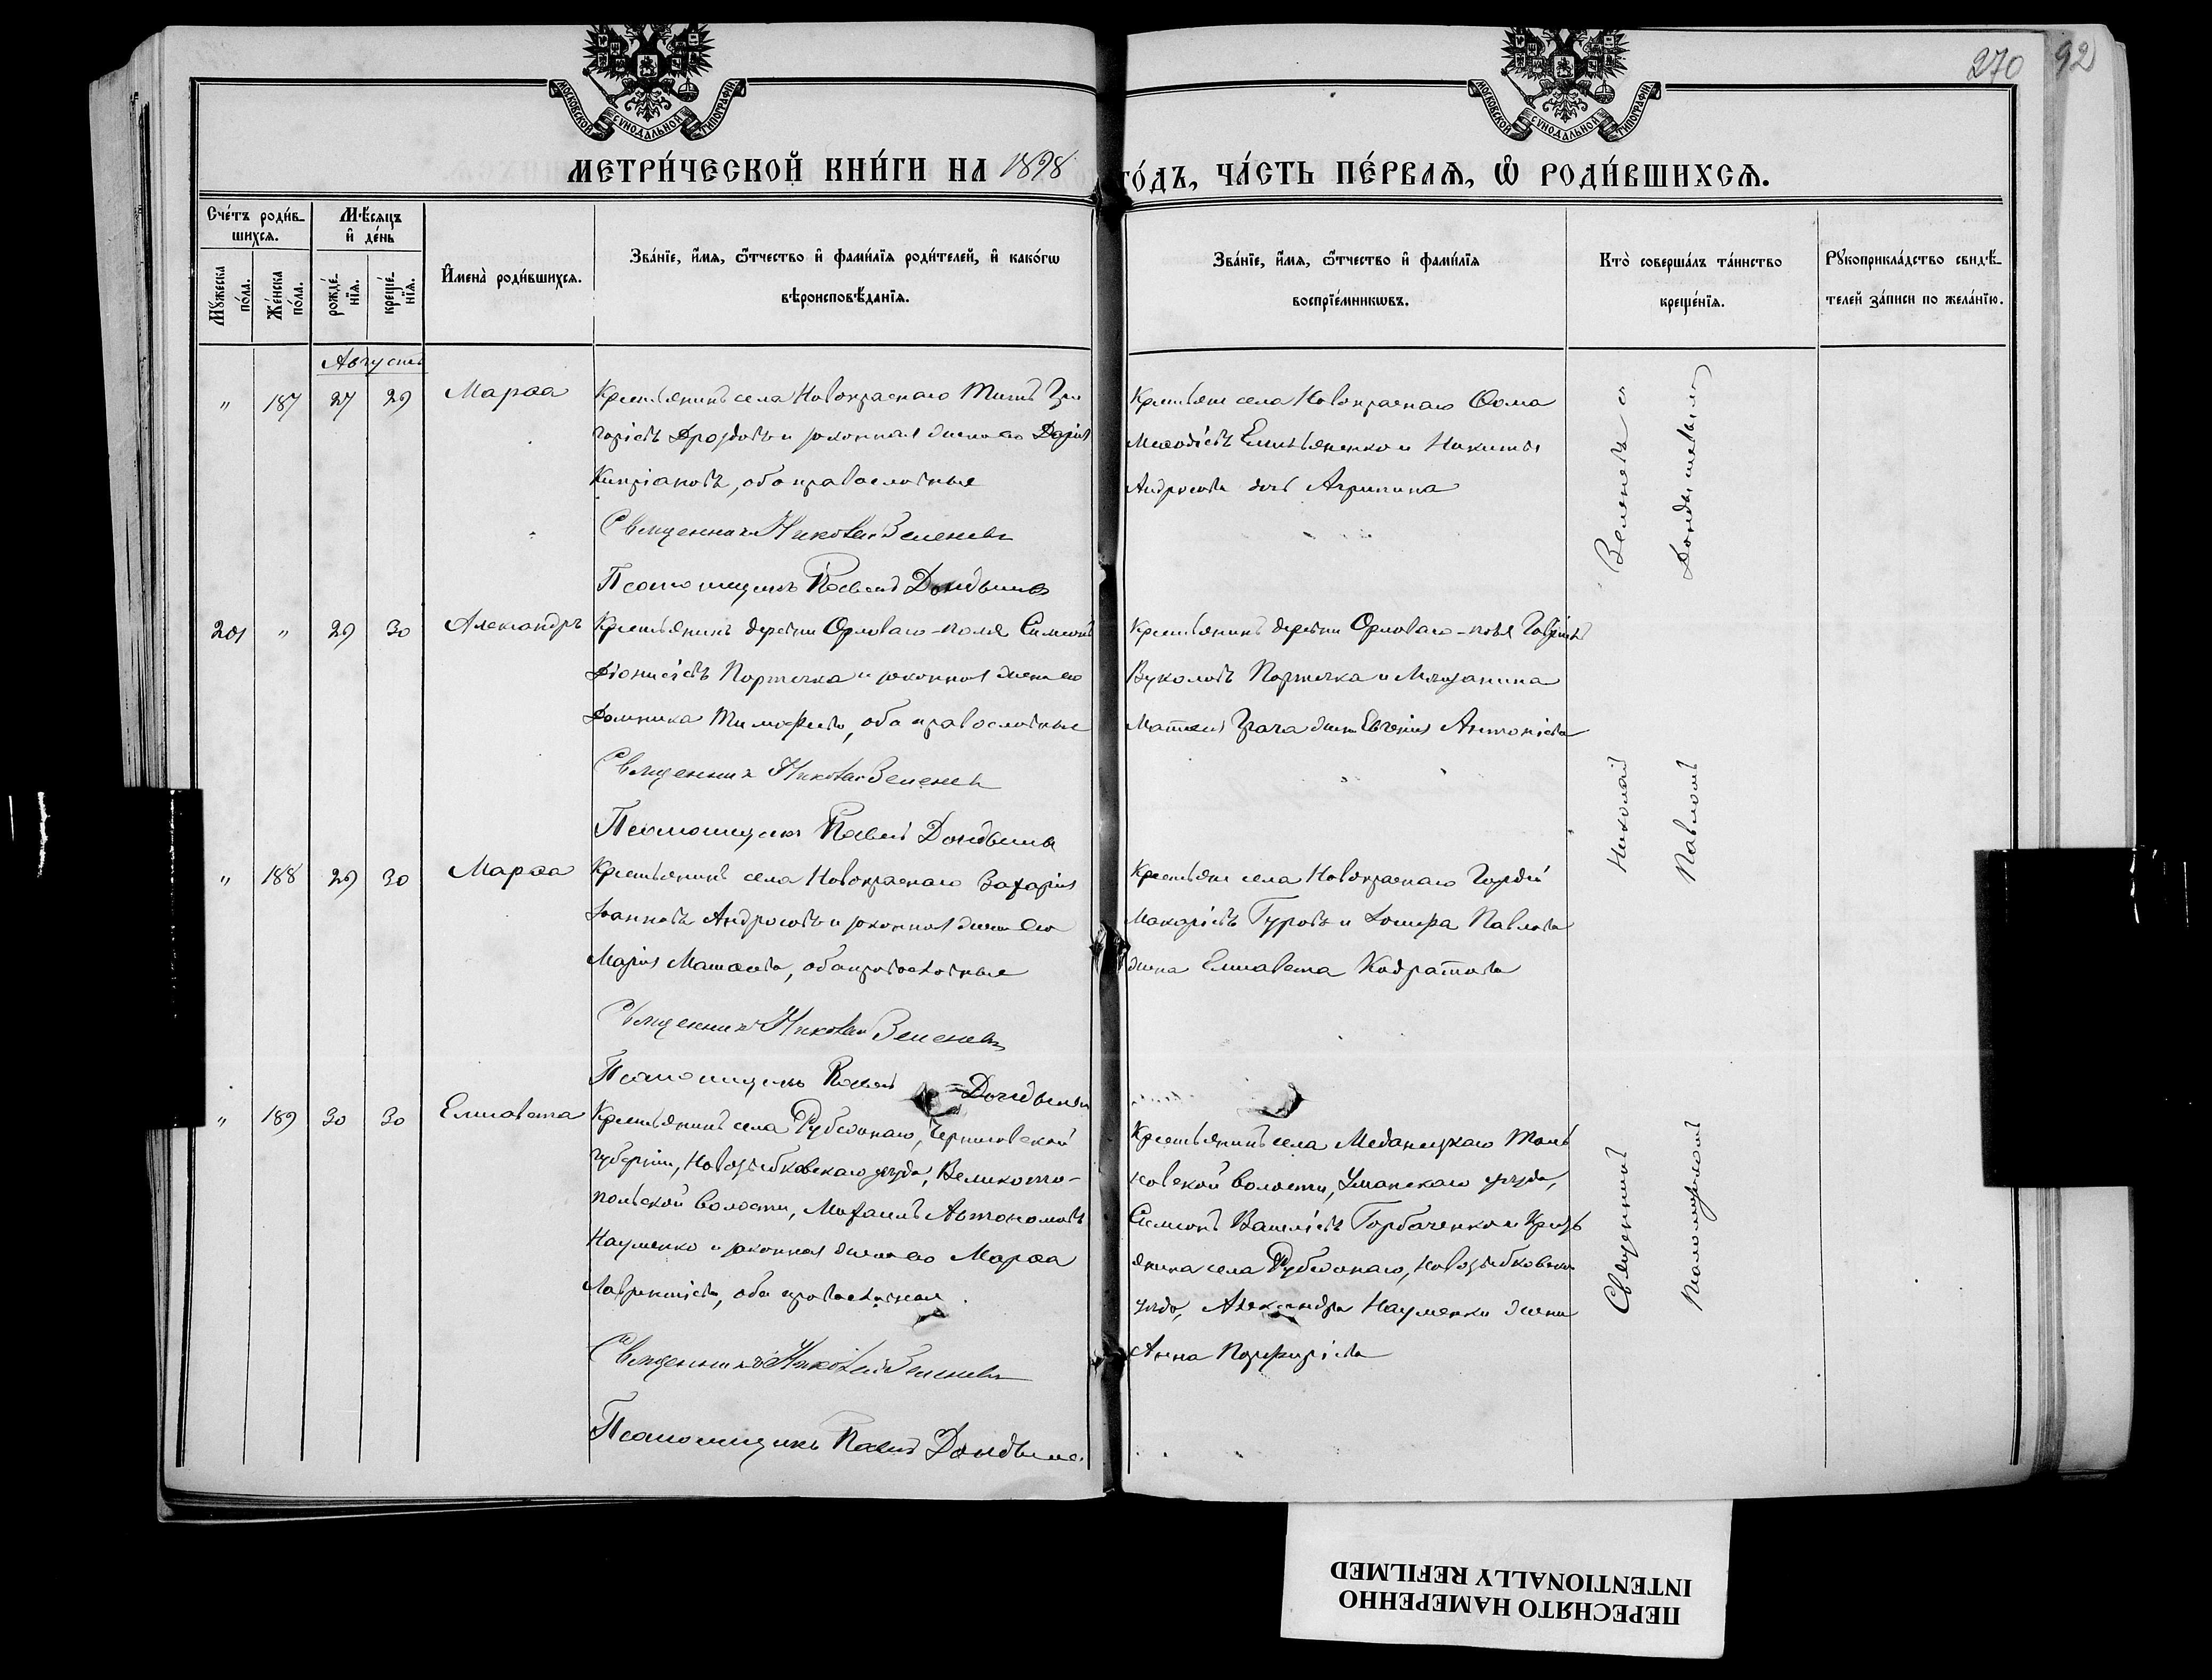 270
92
МОСКОВСКОЙ СѴНОДАЛЬНОЙ ТИПОГРАФІИ
МОСКОВСКОЙ СѴНОДАЛЬНОЙ ТИПОГРАФІИ
МЕТРИ́ЧЕСКОЙ КНИ́ГИ НА 1898 ГО́ДЪ, ЧА́СТЬ ПЕ́РВАѦ, Ѽ РОДИ́ВШИХСѦ.
Сче́тъ роди́в-
шихсѧ.
Мѣ́сяцъ
и҆ де́нь
Мꙋ́жеска
по́ла.
Же́нска
по́ла.
рожде́-
нїѧ.
креще́-
нїѧ.
И҆мена̀ роди́вшихсѧ.
Зва́нїе, и҆́мѧ, ѻ҆́тчество и҆ фами́лїѧ роди́телей, и҆ како́гѡ
вѣроисповѣ́данїѧ.
Зва́нїе, и҆́мѧ, ѻ҆́тчество и҆ фами́лїѧ
воспрїе́мникѡвъ.
Кто̀ соверша́лъ та́инство
креще́нїѧ.
Рꙋкоприкла́дство свидѣ́-
телей за́писи по жела́нїю.
Августъ
" 187 27 29 Марѳа
Крестьянинъ села Новокраснаго Титъ Гри
горіевъ Дроздовъ и законная жена его Дарія
Кипріановъ, оба православные
Священникъ Николай Зеленевъ
Псаломщикъ Павелъ Дондышъ
Крестьяне села Новокраснаго Ѳома
Меѳодіевъ Емельяненко и Никиты
Андросова дочь Агрипина
201 " 29 30 Александръ
Крестьянинъ деревни Орловаго-поля Симеонъ
Діонисіевъ Портечка и законная жена его
Домника Тимофеева, оба православные
Священникъ Николай Зеленевъ
Псаломщикъ Павелъ Дондышъ
Крестьянинъ деревни Орловаго-поля Гавріилъ
Вуколовъ Портечка и Мѣщанина
Матѳея Грача жена Евгенія Антоніева
" 188 29 30 Марѳа
Крестьянинъ села Новокраснаго Захарія
Іоанновъ Андросовъ и законная жена его
Марія Матѳеева, оба православные
Священникъ Николай Зеленевъ
Псаломщикъ Павелъ Дондышъ
Крестьяне села Новокраснаго Гордѣй
Макаріевъ Гуровъ и Іосифа Павлова
жена Елисавета Кодратова
" 189 30 30 Елисавета
Крестьянинъ села Черниговской
губерніи, Новозыбковскаго уѣзда, Великото-
польской волости, Михаилъ Автономовъ
Науменко и законная жена его Марѳа
Лаврентіева, оба православные
Священникъ Николай Зеленевъ
Псаломщикъ Павелъ Дондышъ
Крестьянинъ села Меданецкаго
волости, Уманскаго уѣзда,
Симеонъ Василіевъ Горбаченко и Кресть
янина села Новозыбковскаго
уѣзда, Александра Науменки жена
Анна Порфиріева
Священникъ Николай Зеленевъ съ
Псаломщикомъ Павломъ Дондышевымъ
ПЕРЕСНЯТО НАМЕРЕННО
INTENTIONALLY REFILMED